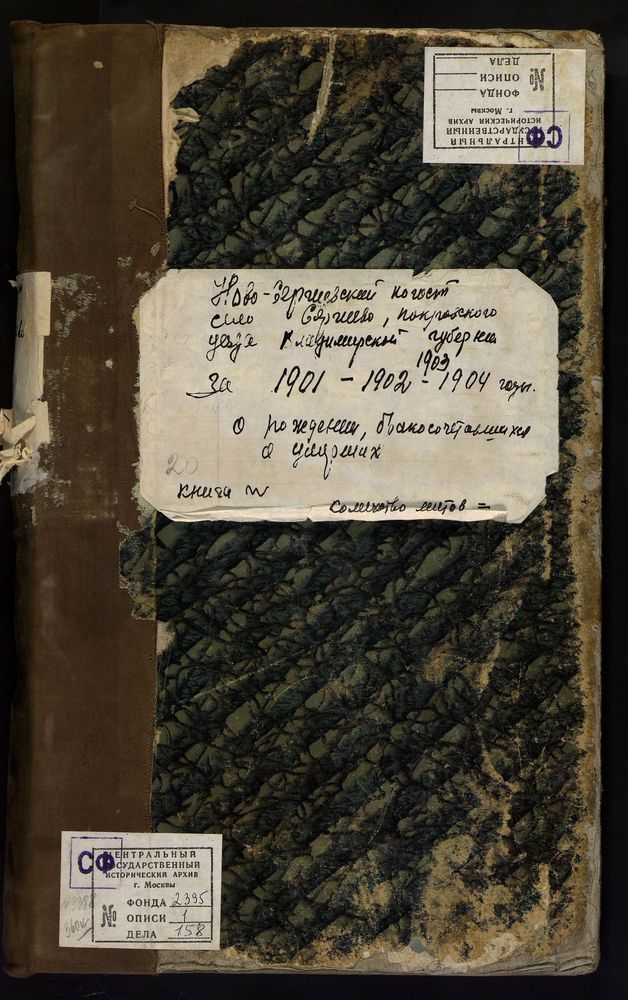 №
ДЕЛА
ОПИСИ
ФОНДА
г. Москвы
ИСТОРИЧЕСКИЙ АРХИВ
ГОСУДАРСТВЕННЫЙ
ЦЕНТРАЛЬНЫЙ
СФ
Ново-Сергиевский погост
село Сергиево, покровского
уезда Владимирской губернии
1903
За 1901 - 1902 - 1904 годы.
О рождении, бракосочетавшихся
о умерших
20
книга №
Количество листов =
СФ
ЦЕНТРАЛЬНЫЙ
ГОСУДАРСТВЕННЫЙ
ИСТОРИЧЕСКИЙ АРХИВ
г. Москвы
№
ФОНДА 2395
ОПИСИ 1
ДЕЛА 158